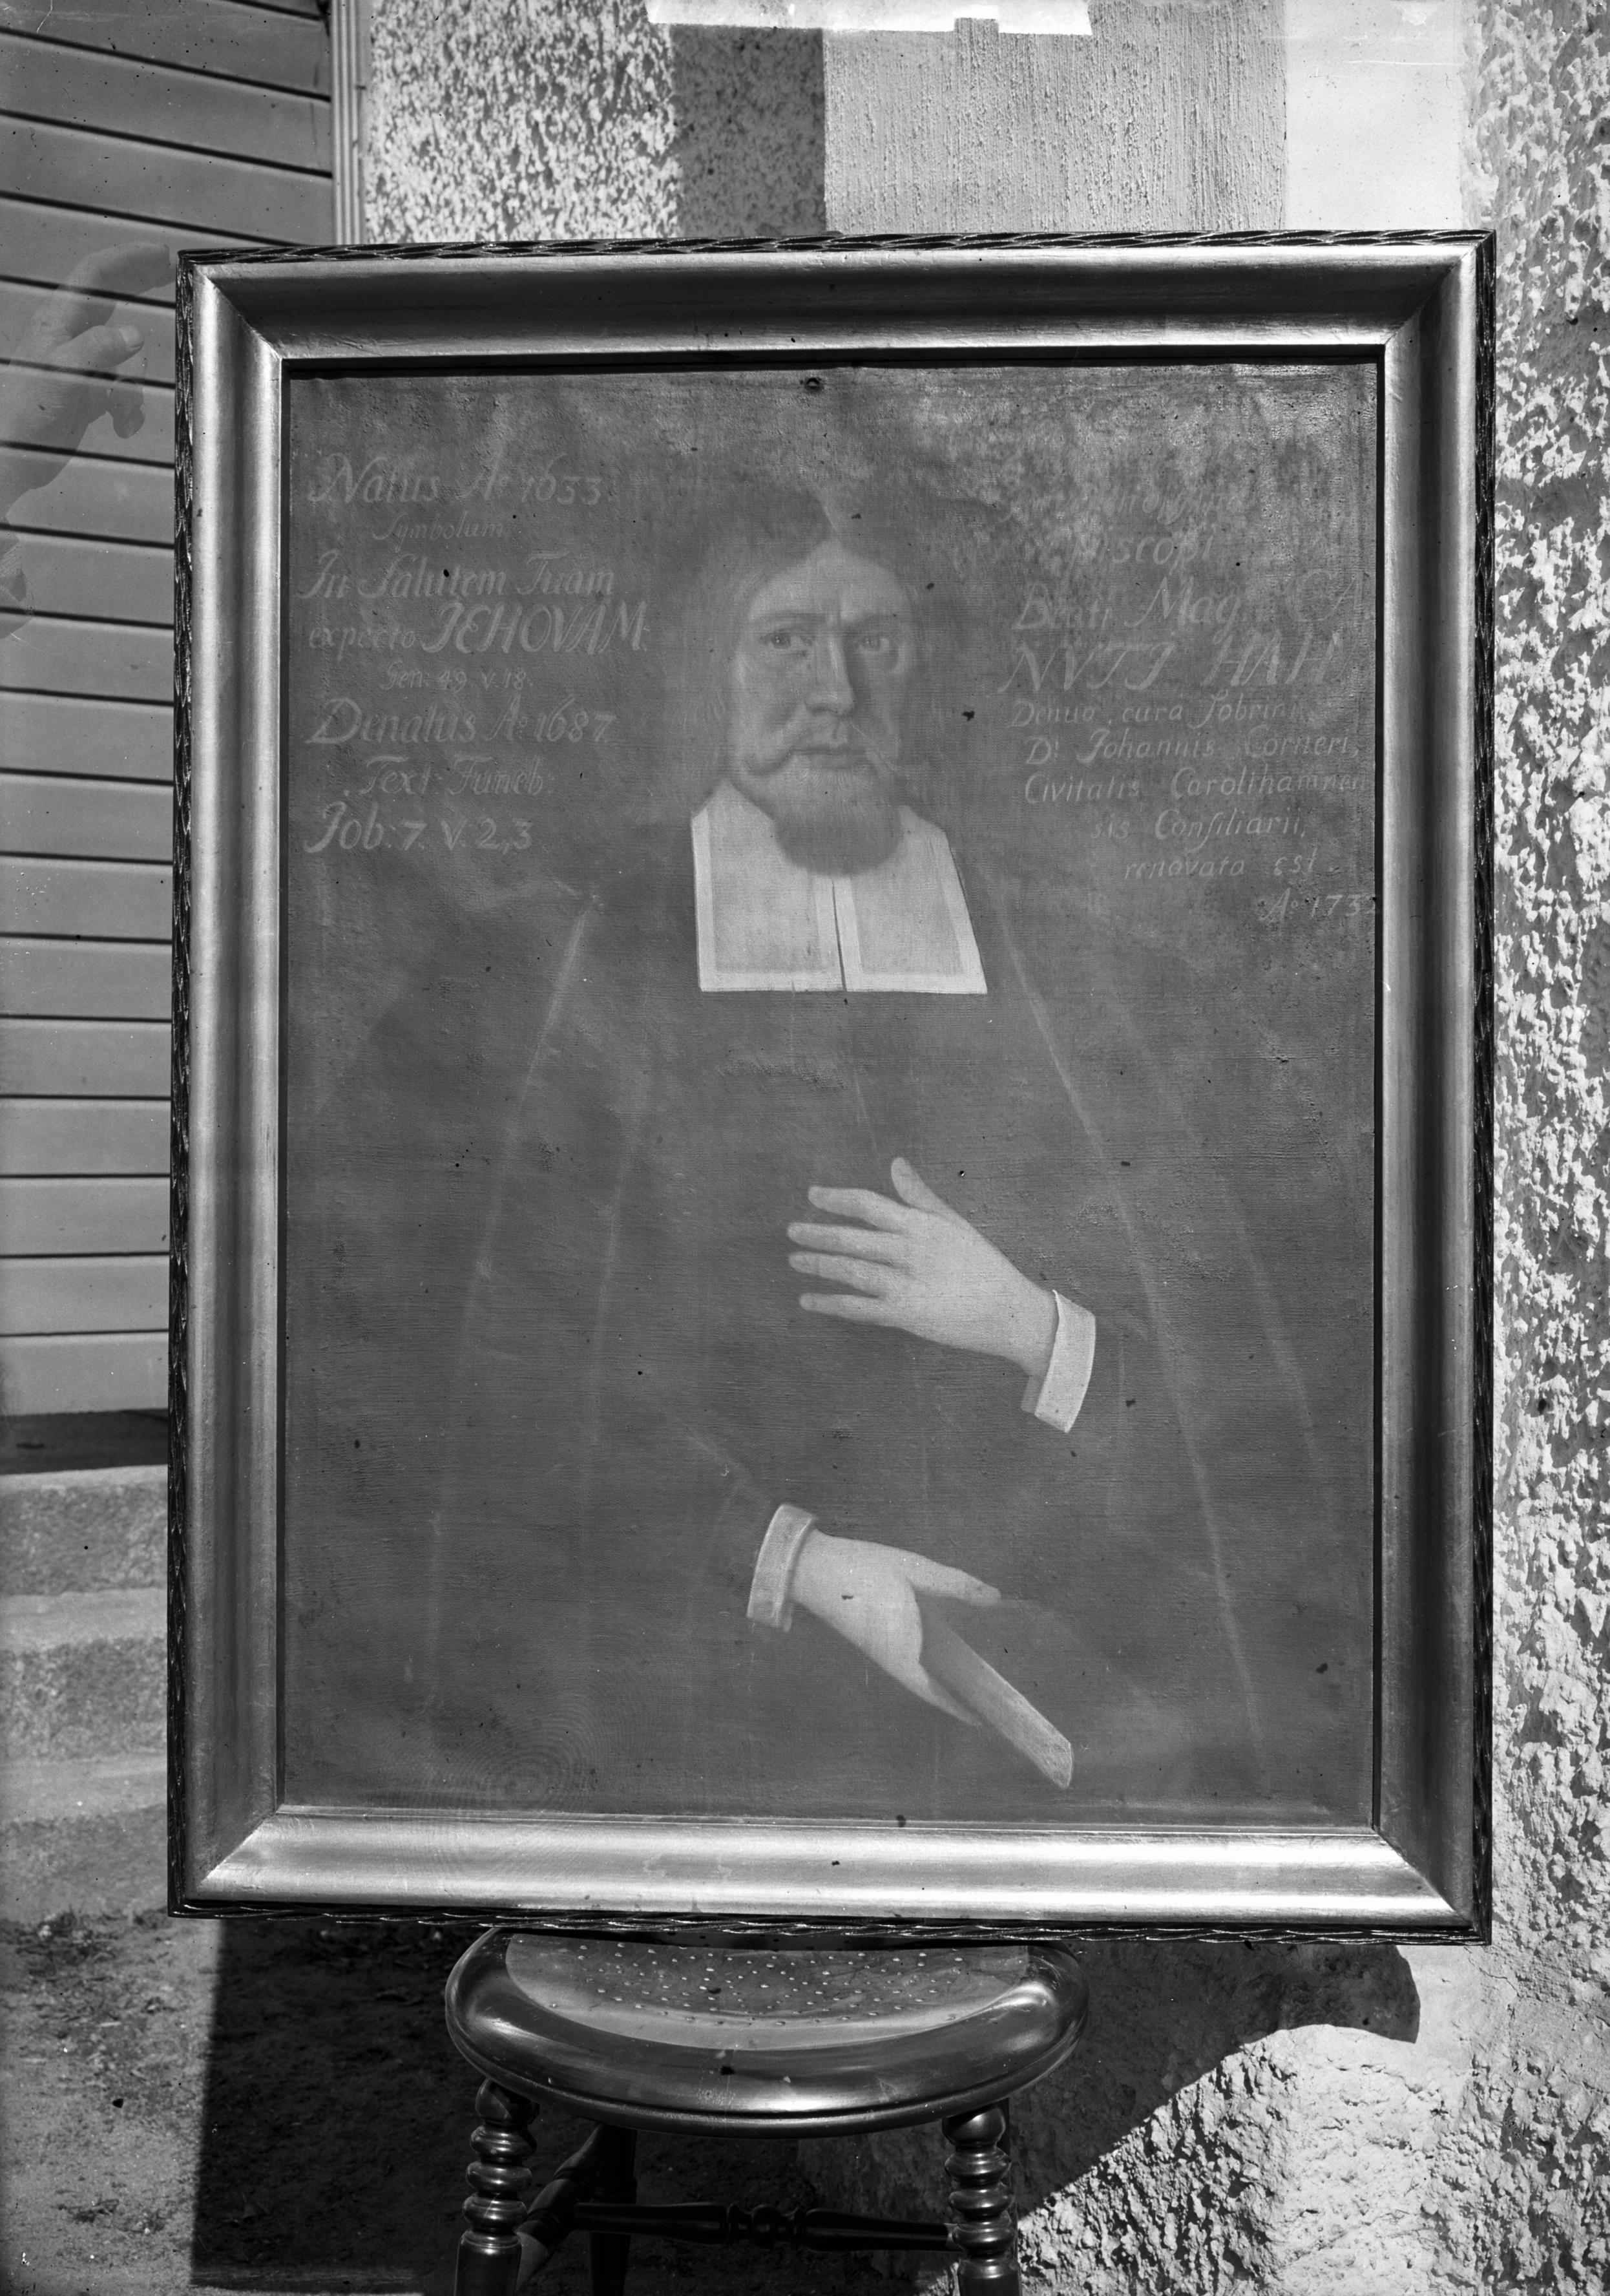 Natus Aº 1633
Symbolum
In Salutem Tuam
expecto JEHOVAM:
Gen: 49 v. 18.
Denatus Aº 1687
Text: Funeb:
Job: 7. V. 2,3
iscopi
Beati Mag CA
NVTI HAH
Denuo, cura Sobrini
Dⁱ Johannis Corneri,
Civitatis Carolihamnen
sis Consiliarii,
renovata est
Aº 1732